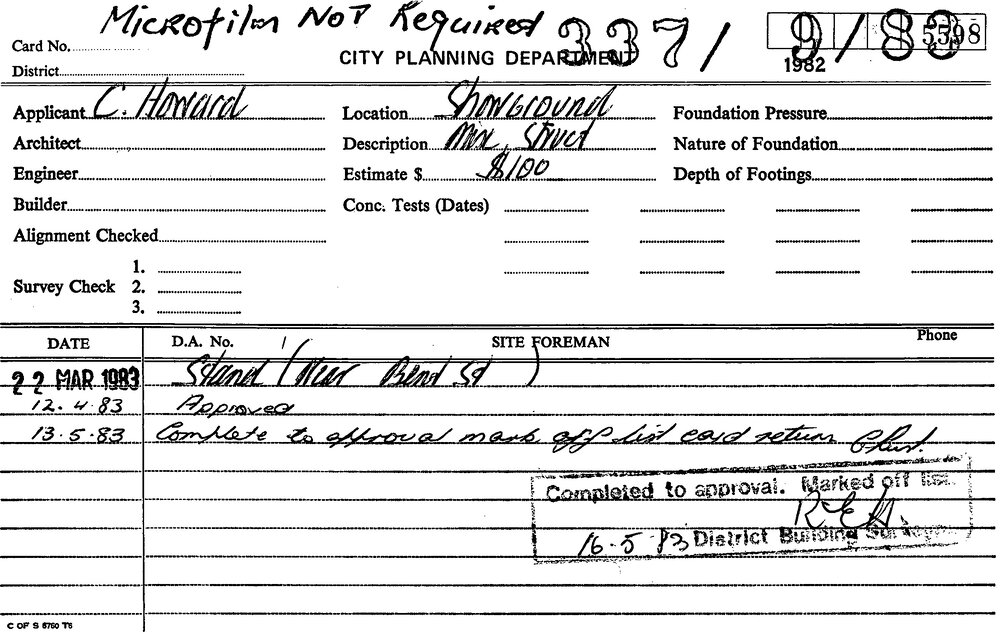 Microfilm Not Required 337/ 9/83 5598
Card No.
CITY PLANNING DEPARTMENT
1982
District
Applicant C. Howard Location Showground Foundation Pressure
Architect Description Misc. Struct Nature of Foundation
Engineer Estimate $ $100 Depth of Footings
Builder Conc. Tests (Dates)
Alignment Checked
1.
Survey Check 2.
3.
DATE D.A. No. / SITE FOREMAN Phone
22 MAR 1983 Stand (Near Bent St)
12.4.83 Approved
13.5.83 Complete to approval mark off list card return
Completed to approval. Marked off list.
16.5.83 District Building Surveyor
C OF S 6760 T6